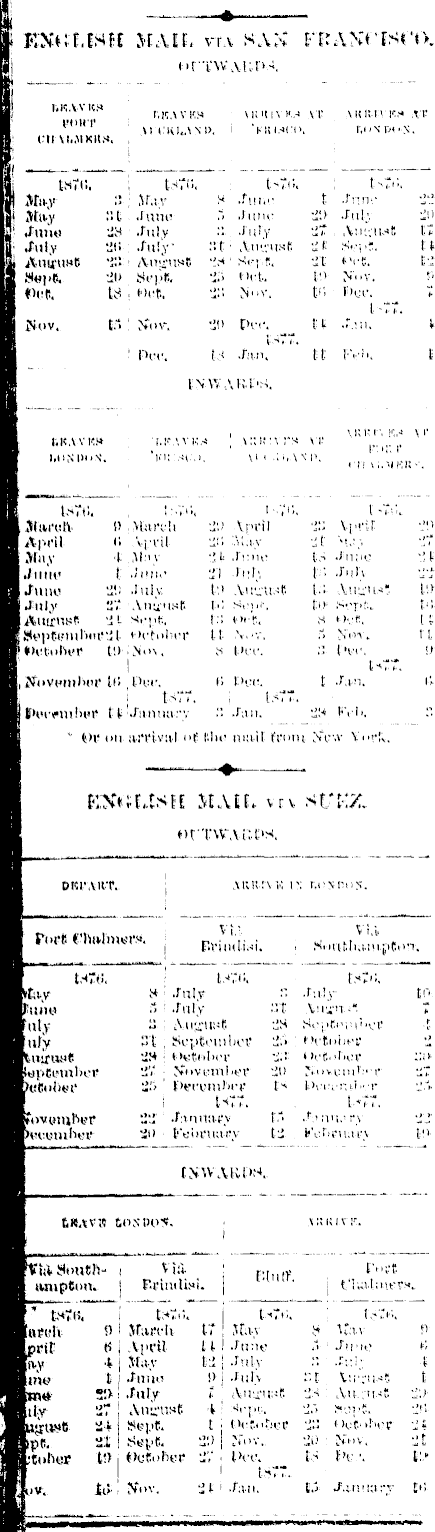 ENGLISH MAIL VIA SAN FRANCISCO.
OUTWARDS.
LEAVES PORT CHALMERS. LEAVES AUCKLAND. ARRIVES AT 'FRISCO. ARRIVES AT LONDON.
1876. 1876. 1876. 1876.
May 3 May 8 June 1 June 22
May 31 June 5 June 29 July 20
June 28 July 3 July 27 August 17
July 26 July 31 August 24 Sept. 14
August 23 August 28 Sept. 21 Oct. 12
Sept. 20 Sept. 25 Oct. 19 Nov. 9
Oct. 18 Oct. 23 Nov. 16 Dec. 7
1877.
Nov. 15 Nov. 20 Dec. 14 Jan. 4
1877.
Dec. 18 Jan. 11 Feb. 1
INWARDS.
LEAVES LONDON. LEAVES 'FRISCO. ARRIVES AT AUCKLAND. ARRIVES AT PORT CHALMERS.
1876. 1876. 1876. 1876.
March 9 March 29 April 23 April 29
April 6 April 26 May 21 May 27
May 4 May 24 June 18 June 24
June 1 June 21 July 16 July 22
June 29 July 19 August 13 August 19
July 27 August 16 Sept. 10 Sept. 16
August 24 Sept. 13 Oct. 8 Oct. 14
September 21 October 11 Nov. 5 Nov. 11
October 19 Nov. 8 Dec. 3 Dec. 9
1877.
November 16 Dec. 6 Dec. Jan. 6
1877. 1877.
December 14 January 3 Jan. 28 Feb. 3
* Or on arrival of the mail from New York.
ENGLISH MAIL VIA SUEZ.
OUTWARDS.
DEPART. ARRIVE IN LONDON.
Port Chalmers. Via Brindisi. Via Southampton.
1876. 1876. 1876.
May 8 July 3 July 10
June 5 July 31 August 7
July 3 August 28 September 4
July 31 September 25 October 2
August 28 October 23 October 30
September 27 November 20 November 27
October 25 December 18 December 25
1877. 1877.
November 22 January 15 January 22
December 20 February 12 February 19
INWARDS.
LEAVE LONDON. ARRIVE.
Via Southampton. Via Brindisi. Bluff. Port Chalmers.
1876. 1876. 1876. 1876.
March 9 March 17 May 8 May 9
April 6 April 14 June 5 June 6
May 4 May 12 July 3 July 4
June 1 June 9 July 31 August 1
June 29 July 7 August 28 August 29
July 27 August 4 Sept. 25 Sept. 26
August 24 Sept. 1 October 23 October 24
Sept. 21 Sept. 29 Nov. 20 Nov. 21
October 19 October 27 Dec. 18 Dec. 19
1877.
Nov. 16 Nov. 24 Jan. 15 January 16